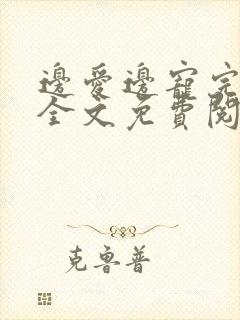 邊愛邊寵完
全文免費閱
克魯普